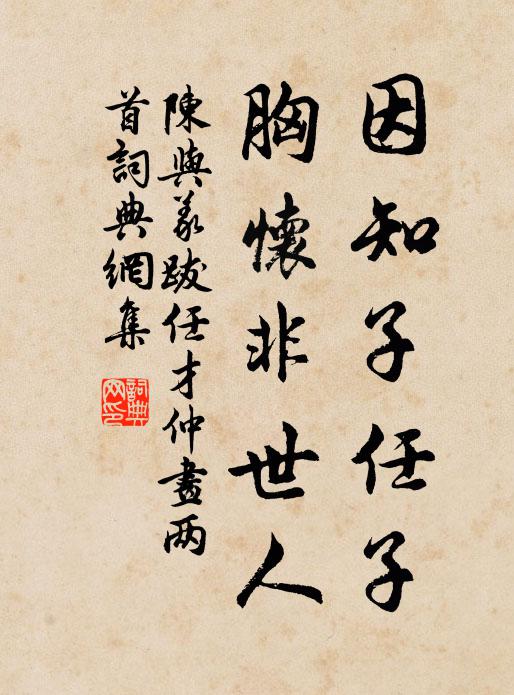 因知子任子
胸懷非世人
陳與義跋任才仲畫两
首詞典網集
詞典
网印